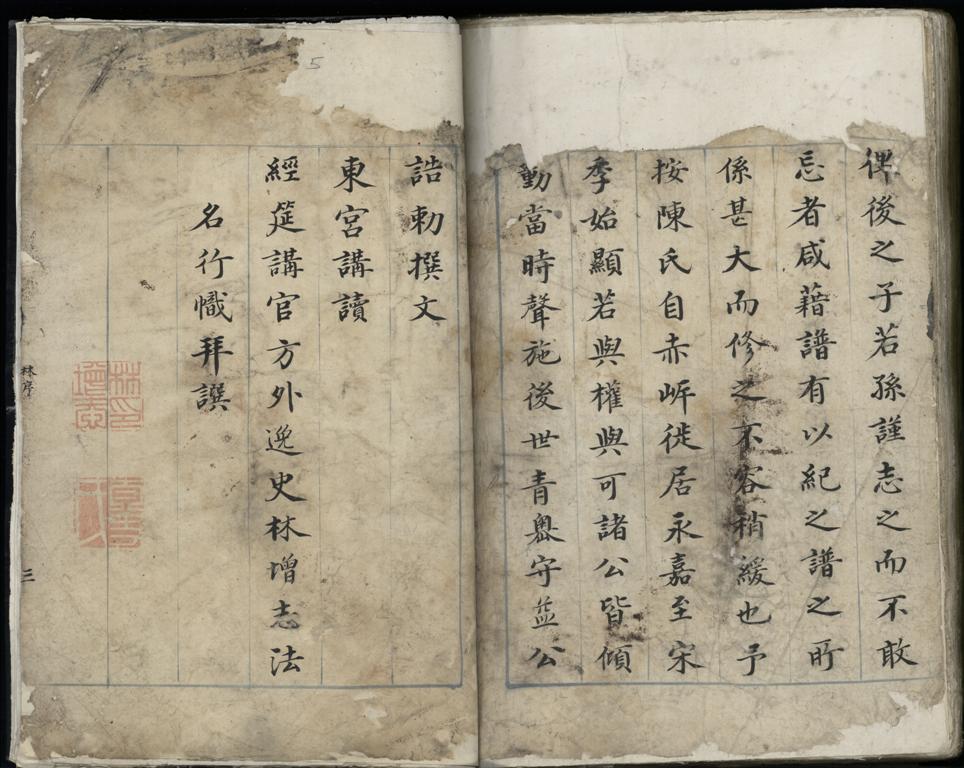 俾後之子若孫謹志之而不敢
忘者咸藉譜有以紀之譜之所
係甚大而修之不容稍緩也予
按陳氏自赤岸徙居永嘉至宋
季始顯若與權與可諸公皆傾
動當時聲施後世青㠗守益公
誥勅撰文
東宮講讀
經筵講官方外逸史林增志法
名行幟拜譔
林序
三
5